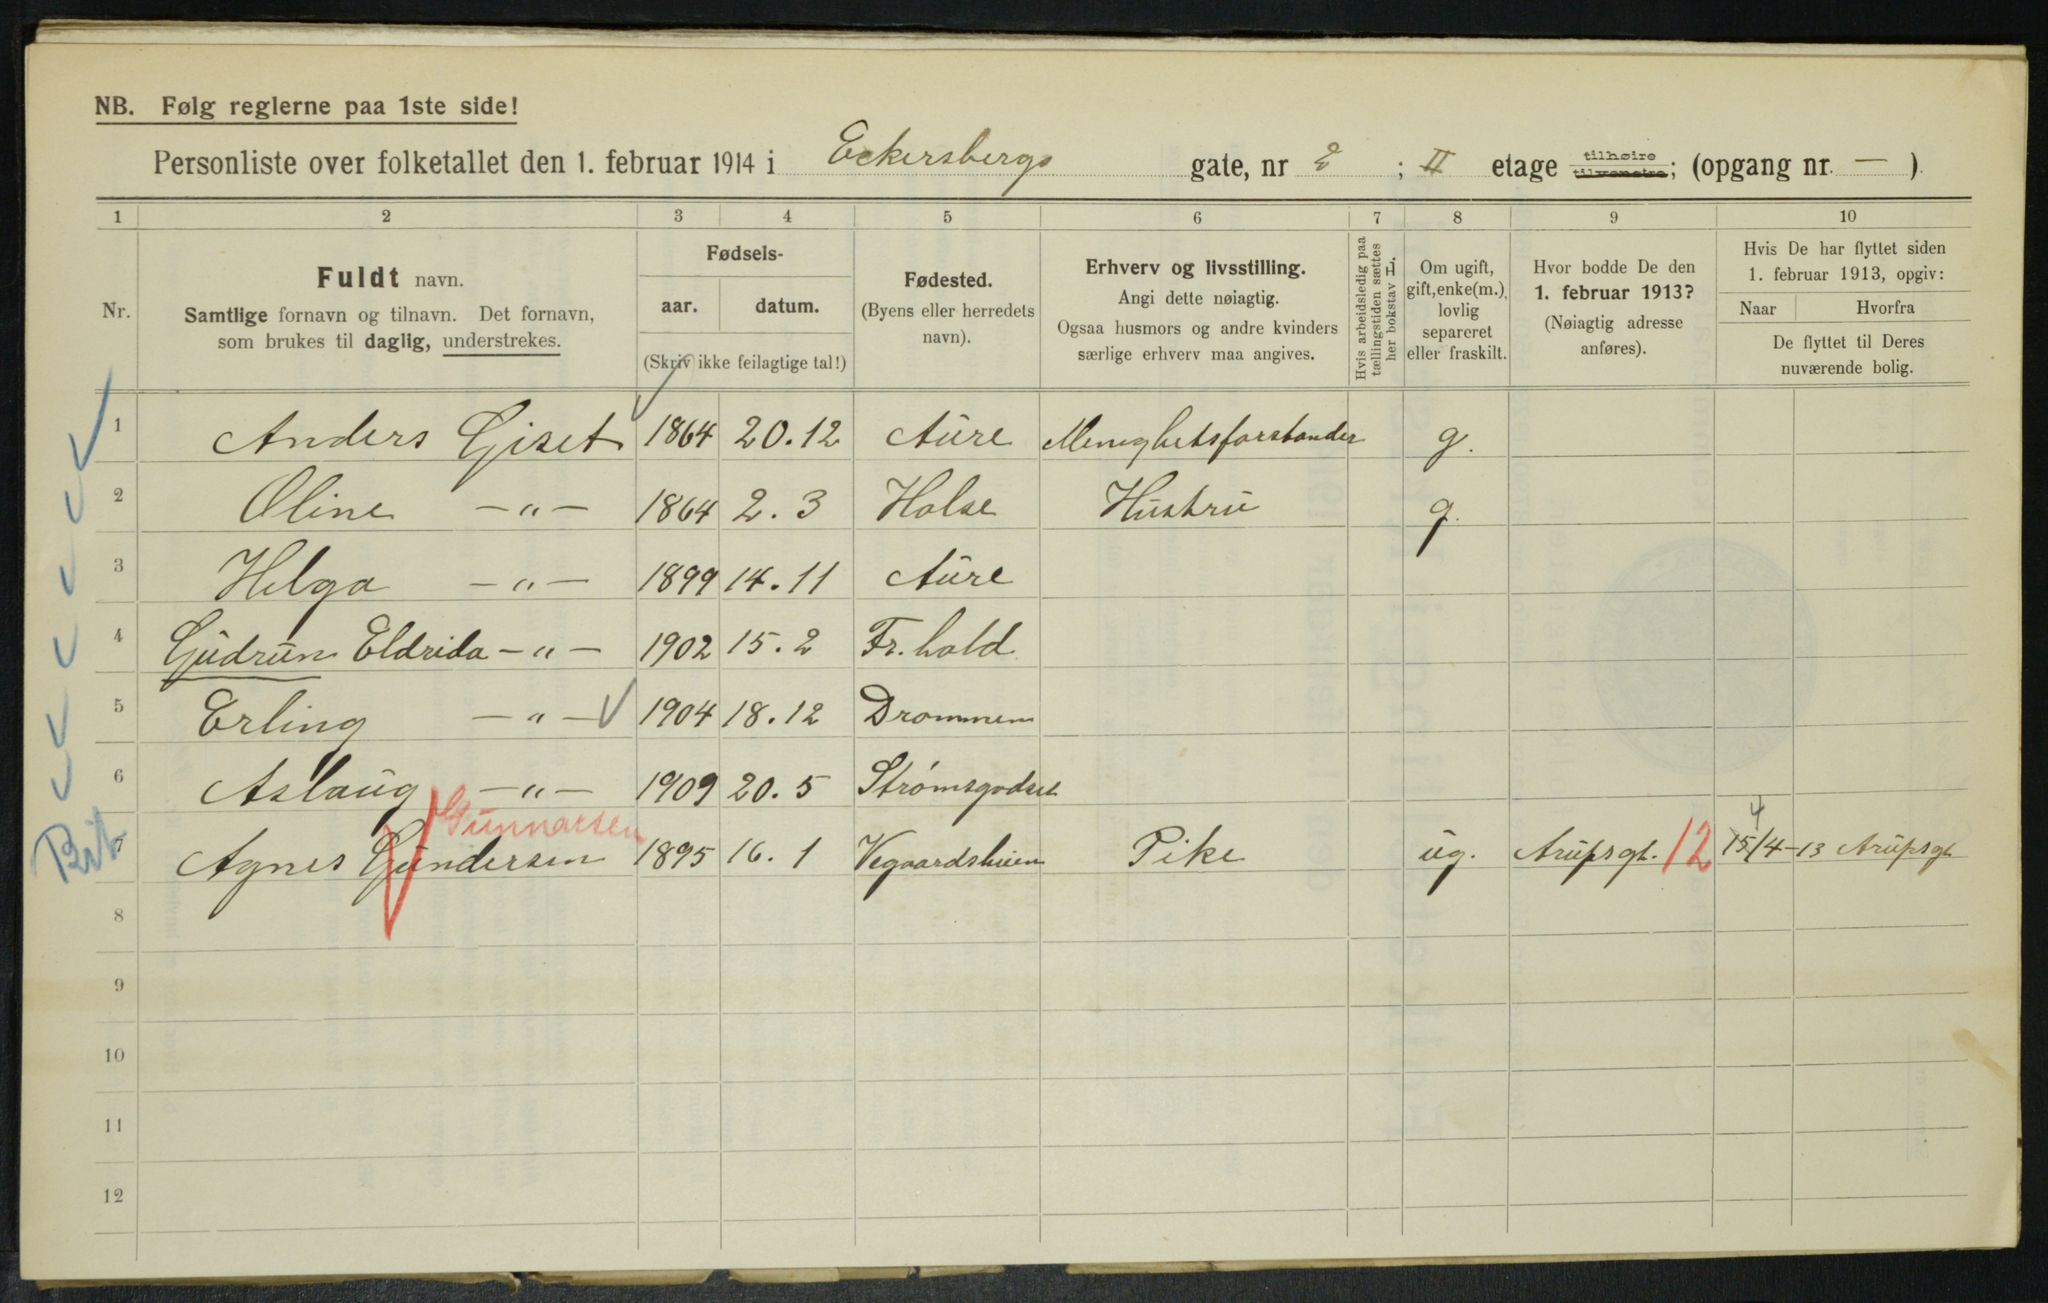 NB. Følg reglerne paa 1ste side!
Personliste over folketallet den 1. februar 1914 i Eckersbergs gate, nr 2 ; II etage tilhøire tilvenstre; (opgang nr. — ).
1 2 3 4 5 6 7 8 9 10
Nr.
Fuldt navn.
Samtlige fornavn og tilnavn. Det fornavn,
som brukes til daglig, understrekes.
Fødsels-
aar. datum.
(Skriv ikke feilagtige tal!)
Fødested.
(Byens eller herredets
navn).
Erhverv og livsstilling.
Angi dette nøiagtig.
Ogsaa husmors og andre kvinders
særlige erhverv maa angives.
Hvis arbeidsledig paa
tællingstiden sættes
her bokstav L.
Om ugift,
gift, enke(m.),
lovlig
separeret
eller fraskilt.
Hvor bodde De den
1. februar 1913?
(Nøiagtig adresse
anføres).
Hvis De har flyttet siden
1. februar 1913, opgiv:
Naar Hvorfra
De flyttet til Deres
nuværende bolig.
1 Anders Giset 1864 20.12 Aure Menighetsforstander g.
2 Oline —"— 1864 2.3 Halse Hustru g.
3 Helga —"— 1899 14.11 Aure
4 Gudrun Eldrida —"— 1902 15.2 Fr.hald
5 Erling —"— 1904 18.12 Drammen
6 Aslaug —"— 1909 20.5 Strømsgodset
Gunnarsen 4
7 Agnes Gundersen 1895 16.1 Vegaardsheien Pike ug. Arupsgt. 12 15/4-13 Arupsgt
8
9
10
11
12